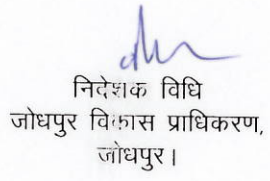 निदेशक विधि
जोधपुर विकास प्राधिकरण,
जोधपुर।